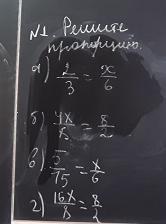 №1. Решите
пропорцию.
а) 2/3 = x/6
б) 4x/8 = 8/2
в) 5/75 = x/6
г) 16x/8 = 8/2